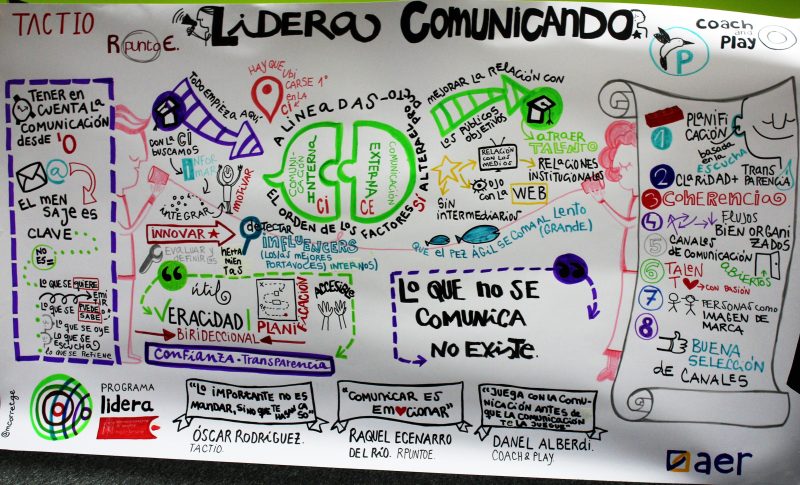 TACTIO
RpuntoE.
LIDERA COMUNICANDO
COACH
and
PLAY
P
TENER EN
CUENTA LA
COMUNICACIÓN
DESDE '0
@
EL MEN
SAJE ES
CLAVE
NO ES=
LO QUE SE QUIERE
EMITIR
LO QUE SE PUEDE
SABE
LO QUE SE OYE
LO QUE SE
ESCUCHA
LO QUE SE RETIENE
TODO EMPIEZA AQUÍ
HAY QUE UBI
CARSE 1º
EN LA
CI
CON LA CI
BUSCAMOS
INFOR
MAR
INTEGRAR
MOTIVAR
INNOVAR
EVALUAR Y
DEFINIR
HERRA
MIEN
TAS
DETECTAR
INFLUENCERS
(LOS/AS MEJORES
PORTAVOCES INTERNOS)
ALINEADAS
COMUNICACIÓN
INTERNA
CI
COMUNICACIÓN
EXTERNA
CE
EL ORDEN DE LOS FACTORES SÍ ALTERA EL PRODUCTO
MEJORAR LA RELACIÓN CON
LOS PÚBLICOS
OBJETIVOS
ATRAER
TALENTO
RELACIÓN
CON LOS
MEDIOS
RELACIONES
INSTITUCIONALES
OJO CON LA
WEB
SIN
INTERMEDIARIOS
QUE EL PEZ ÁGIL SE COMA AL LENTO
(GRANDE)
útil
VERACIDAD
BIRIDECCIONAL
PLANIFICACIÓN
ACCESIBLE
CONFIANZA - TRANSPARENCIA
LO QUE NO SE
COMUNICA
NO EXISTE.
1 PLANIFI
CACIÓN
basada
en la
ESCUCHA
2 CLARIDAD + TRANSPARENCIA
3 COHERENCIA
4 FLUJOS
BIEN ORGANI
ZADOS
5 CANALES
DE COMUNICACIÓN
ABIERTOS
6 TALEN
TO CON PASIÓN
7 PERSONAS COMO
IMAGEN DE
MARCA
8 BUENA
SELECCIÓN
DE CANALES
@mcorretge
PROGRAMA
lidera
"LO IMPORTANTE NO ES
MANDAR, SINO QUE TE HAGAN CASO"
ÓSCAR RODRÍGUEZ.
TACTIO.
"COMUNICAR ES
EMOCIONAR"
RAQUEL ECENARRO
DEL RÍO. RPUNTOE.
"JUEGA CON LA COMU-
NICACIÓN ANTES DE
QUE LA COMUNICACIÓN
TE LA JUEGUE"
DANEL ALBERDI.
COACH & PLAY.
aer